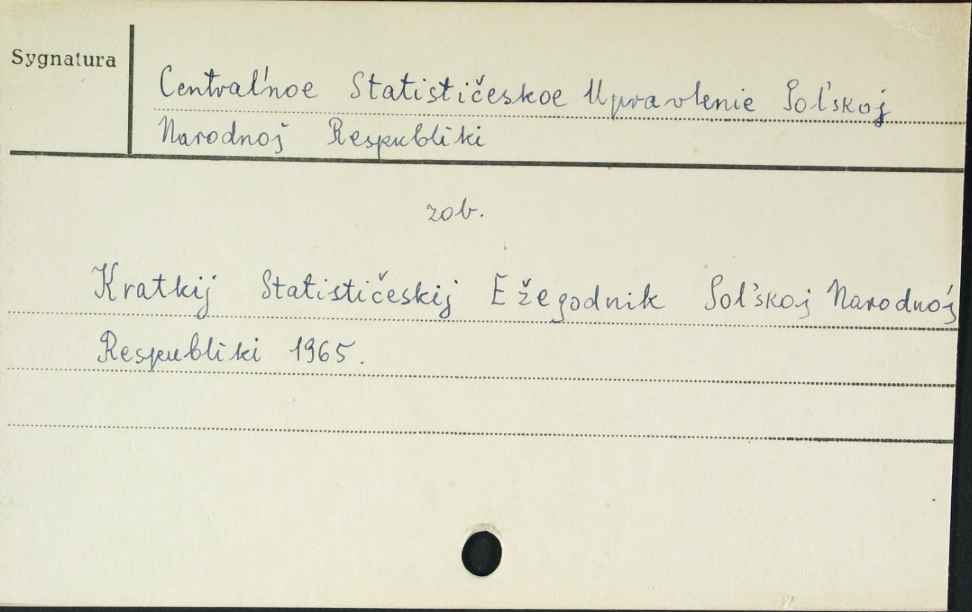 Sygnatura
Central'noe Statističeskoe Upravlenie Pol'skoj
Narodnoj Respubliki
zob.
Kratkij Statističeskij Ežegodnik Pol'skoj Narodnoj
Respubliki 1965.